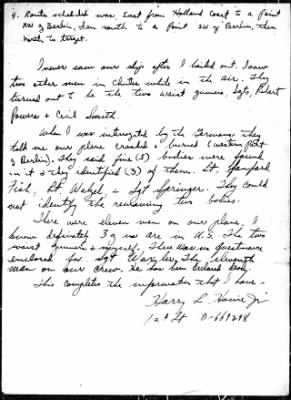 4. Route scheduled was, East from Holland Coast to a Point
NW of Berlin, then south to a Point SW of Berlin, then
North to target.
I never saw our ship after I bailed out. I saw
two other men in chutes while in the air. They
turned out to be the two waist gunners, Sgts, Robert
Powers & Cecil Smith
When I was interrogated by the Germans they
told me our plane crashed & burned (western Part
of Berlin). They said five (5) bodies were found
in it & they identified (3) of them. Lt.
Fish, Lt. Wetzel, & Sgt Springer. They could
not identify the remaining two bodies.
There were eleven men on our plane, I
know definitely 3 of us are in U.S. The two
waist gunners & myself. There was no questionnaire
enclosed for Sgt Waxler, The eleventh
man on our crew. He has been declared dead.
This completes the information that I have.
Harry L. Jr
1st Lt 0-669298